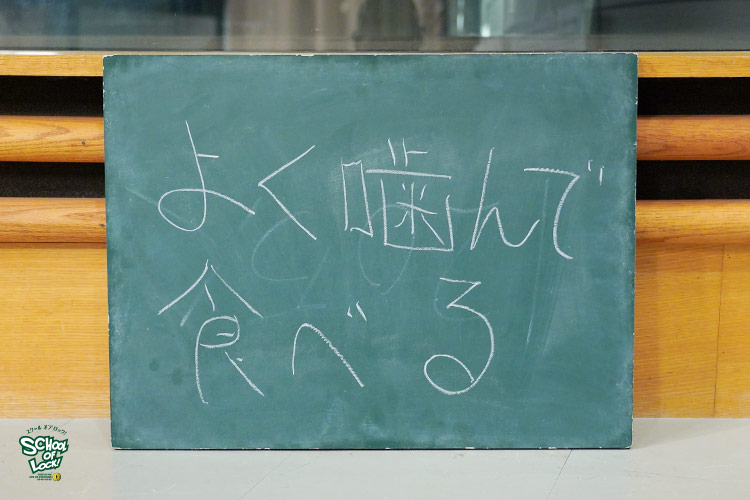 よく噛んで
食べる
スクール オブ ロック!
SCHOOL
OF
LOCK!